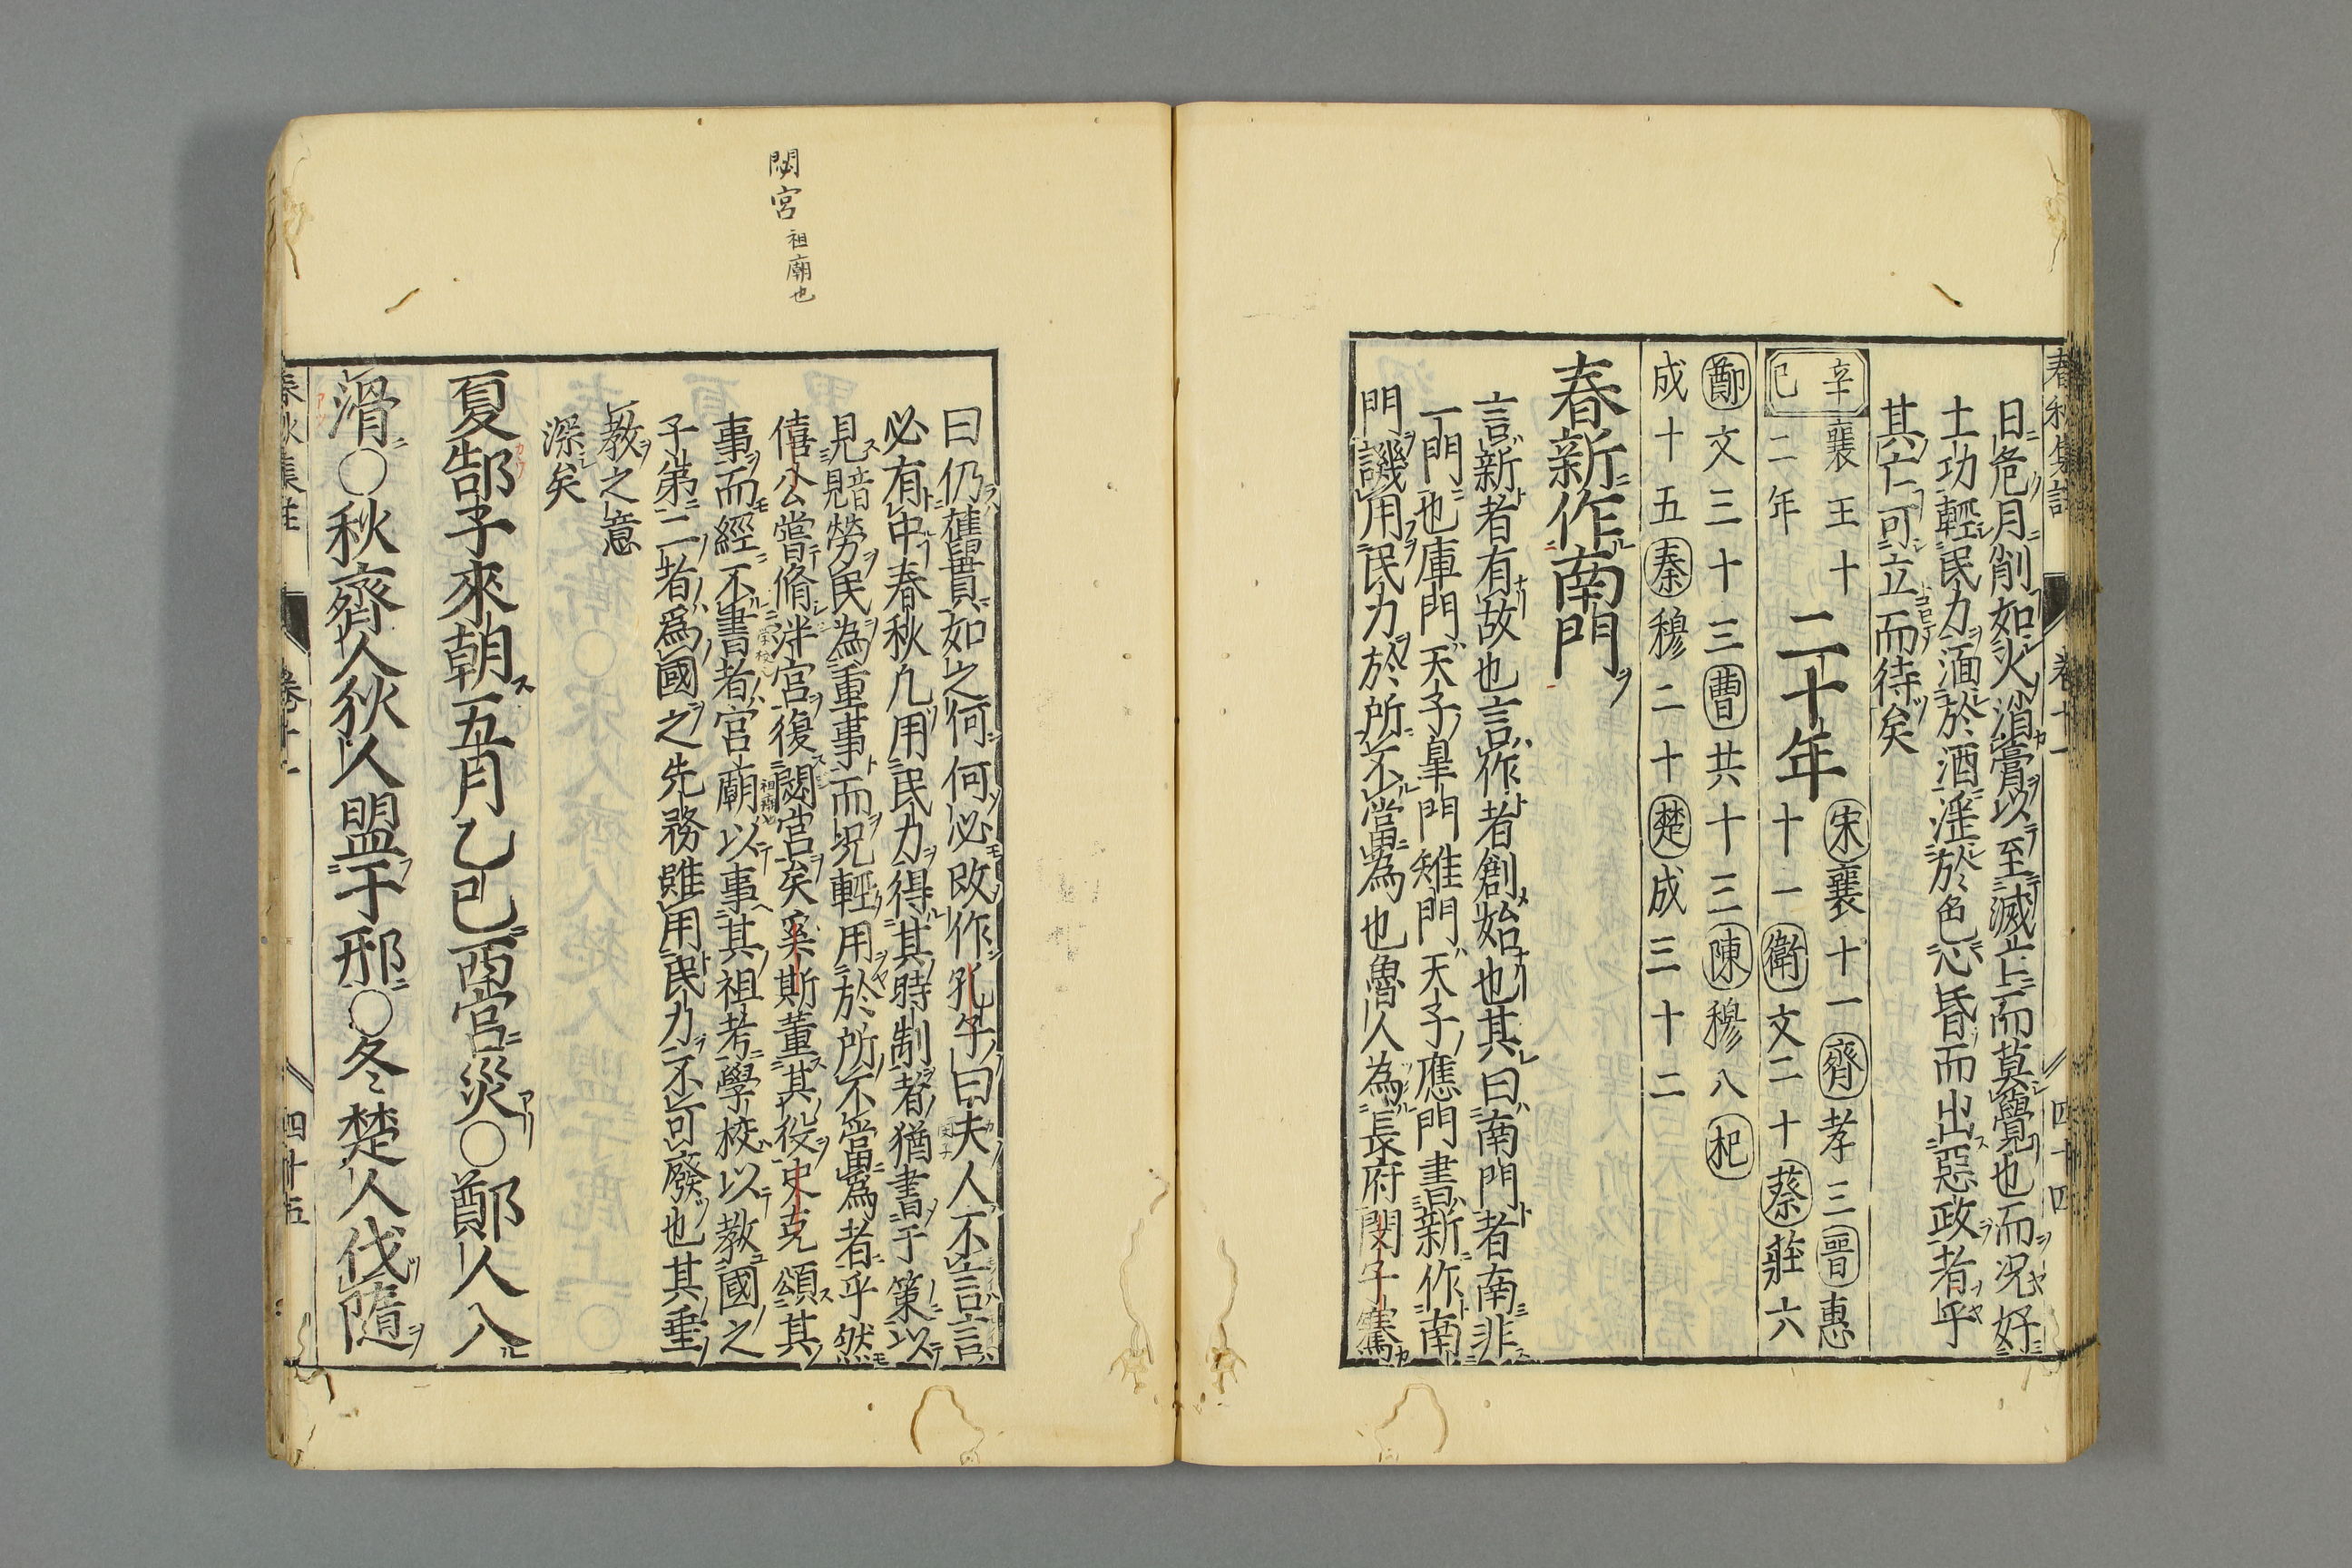 春秋集註 卷十一 四十四
日危月削如火消膏以至滅亡而莫覺也而況好
土功輕民力湎於酒淫於色心昏而出惡政者乎
其亡可立而待矣
辛巳 襄王十二年 二十年 宋襄十一齊孝三晉惠十一衛文二十蔡莊六
鄭文三十三曹共十三陳穆八杞
成十五秦穆二十楚成三十二
春新作南門
言新者有故也言作者創始也其曰南門者南非
一門也庫門天子皐門雉門天子應門書新作南
門譏用民力於所不當為也魯人為長府閔子騫
曰仍舊貫如之何何必改作孔子曰夫人不言言
必有中春秋凡用民力得其時制者猶書于策以
見音現勞民為重事而況輕用於所不當為者乎然
僖公嘗脩泮宮復閟宮矣奚斯董其役史克頌其
事而經不書者宮廟以事其祖考學校以教國之
子弟二者為國之先務雖用民力不可廢也其垂
教之意
深矣
夏郜子來朝五月乙巳西宮災〇鄭人入
滑〇秋齊人狄人盟于邢〇冬楚人伐隨
春秋集註 卷十一 四十五
閟宮 祖廟也
学校
祖廟也